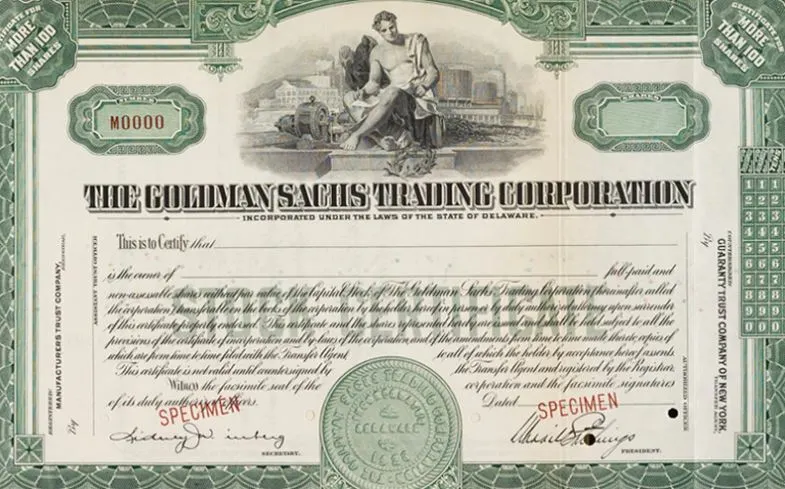 CERTIFICATE FOR
MORE
THAN 100
SHARES
CERTIFICATE FOR
MORE
THAN 100
SHARES
NUMBER
M0000
SHARES
THE GOLDMAN SACHS TRADING CORPORATION
INCORPORATED UNDER THE LAWS OF THE STATE OF DELAWARE.
This is to Certify that
is the owner of full-paid and
non-assessable shares without par value of the Capital Stock of The Goldman Sachs Trading Corporation (hereinafter called
the corporation) transferable on the books of the corporation by the holder hereof in person or by duly authorized attorney upon surrender
of this certificate properly endorsed. This certificate and the shares represented hereby are issued and shall be held subject to all the
provisions of the certificate of incorporation and by-laws of the corporation, and of the amendments from time to time made thereto, copies of
which are from time to time filed with the Transfer Agent to all of which the holder by acceptance hereof assents.
This certificate is not valid until countersigned by the Transfer Agent and registered by the Registrar.
Witness the facsimile seal of the corporation and the facsimile signatures
of its duly authorized officers. Dated
SPECIMEN
SPECIMEN
SECRETARY.
PRESIDENT.
REGISTERED:
MANUFACTURERS TRUST COMPANY,
REGISTRAR,
By
ASSISTANT TRUST OFFICER
COUNTERSIGNED:
GUARANTY TRUST COMPANY OF NEW YORK,
TRANSFER AGENT,
By
AUTHORIZED OFFICER
1 1 1
2 2 2
3 3 3
4 4 4
5 5 5
6 6 6
7 7 7
8 8 8
9 9 9
0 0 0